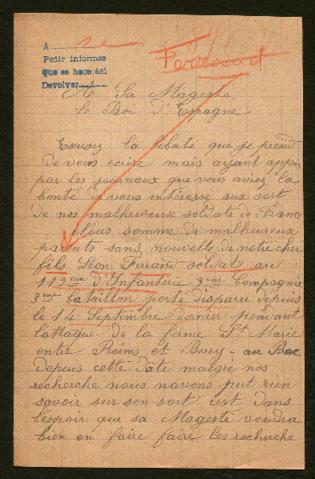 A
Pedir informes
Que se hace así
Devolver
A Sa Magesté
le Roi d'Espagne
Excusez la libaté que je prend
de vous ecrire mais ayant appris
par les journeaux que vous aviez la
bonté de vous intéresse aux sort
de nos malheureux soldats de France
Nous somme de malheureux
parents sans nouvelle de notre cher
fils Léon Ferrand soldat au
me d'Infanterie 9me Compagnie
3me bataillon porté disparu depuis
le 14 Septembre dernier pendant
lattaque de la ferme Ste Marie
entre Reims et Berry-au Bac
depuis cette date malgré nos
recherche nous navons put rien
savoir sur son sort cest dans
l'espoir que sa Magesté voudra
bien en faire faire les recherche